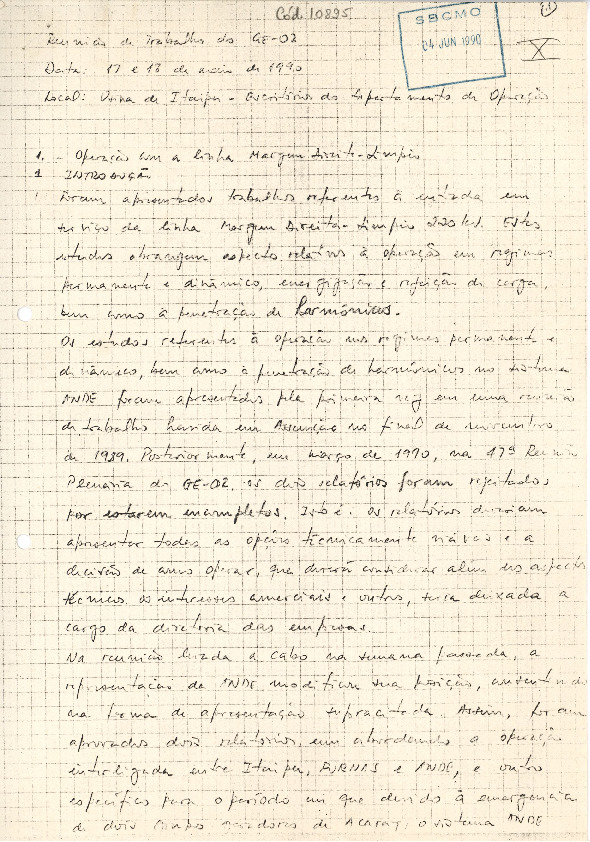 Cód 10895
SBCMO
04 JUN 1990
Reunião de Trabalho do GE-02
Data: 17 e 18 de maio de 1990
Local: Usina de Itaipu - Escritórios do Departamento de Operação
1. - Operação com a linha Margem Direita-Limpio
1 INTRODUÇÃO
Foram apresentados trabalhos referentes à entrada em
serviço da linha Margem Direita-Limpio 220 kV. Estes
estudos abrangem aspecto relativos à operação em regimes
permanente e dinâmico, energização e rejeição de carga,
bem como a penetração de harmônicos.
Os estudos referentes à operação nos regimes permanente e
dinâmico, bem como à penetração de harmônicos no sistema
ANDE foram apresentados pela primeira vez em uma reunião
de trabalho havida em Assunção no final de novembro
de 1989. Posteriormente, em março de 1990, na 47ª Reunião
Plenária do GE-02 os dois relatórios foram rejeitados
por estarem incompletos. Isto é: os relatórios deveriam
apresentar todas as opções técnicamente viáveis e a
decisão de como operar, que deverá considerar além dos aspectos
técnicos os interesses comerciais e outros, seria deixada a
cargo da diretoria das empresas.
Na reunião levada a cabo na semana passada, a
representação da ANDE modificou sua posição, consentindo
na forma de apresentação supracitada. Assim, foram
aprovados dois relatórios, um abordando a operação
interligada entre Itaipu, FURNAS e ANDE, e outro
específico para o período em que devido à emergencia
de dois grupos geradores de Acaray, o sistema ANDE